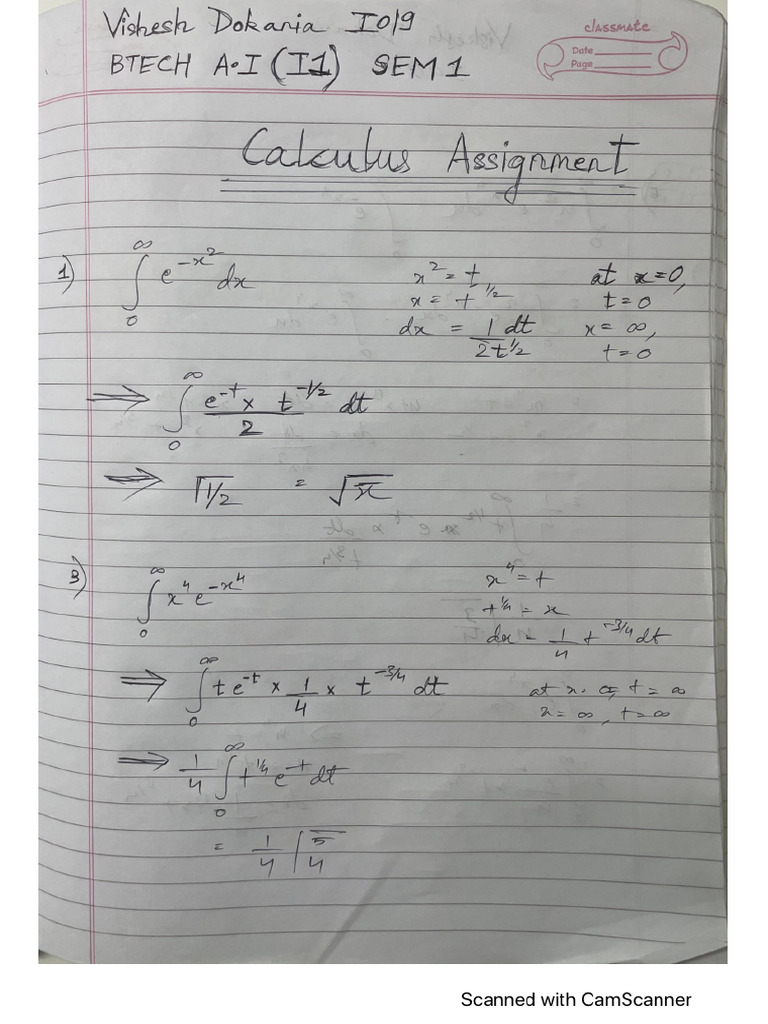 Vishesh Dokania I019
BTECH A.I (I1) SEM 1
classmate
Date
Page
Calculus Assignment
1) ∫₀^∞ e^{-x²} dx
x² = t
x = t^{1/2}
dx = 1/(2t^{1/2}) dt
at x=0,
t=0
x= ∞,
t=0
⇒ ∫₀^∞ (e^{-t} × t^{-1/2})/2 dt
⇒ Γ1/2 = √π
3) ∫₀^∞ x⁴ e^{-x⁴}
x⁴ = t
t^{1/4} = x
dx = 1/4 t^{-3/4} dt
⇒ ∫₀^∞ t e^{-t} × 1/4 × t^{-3/4} dt
at x= 0, t = ∞
x= ∞, t=∞
⇒ 1/4 ∫₀^∞ t^{1/4} e^{-t} dt
= 1/4 Γ5/4
Scanned with CamScanner